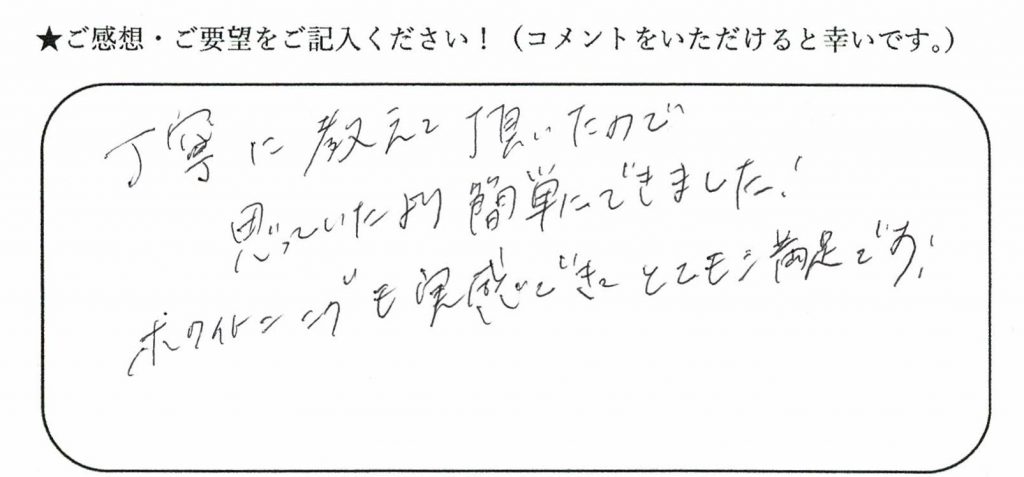 ★ご感想・ご要望をご記入ください！（コメントをいただけると幸いです。）
丁寧に教えて頂いたので
思っていたより簡単にできました！
ホワイトニングも実感できて とても満足です！